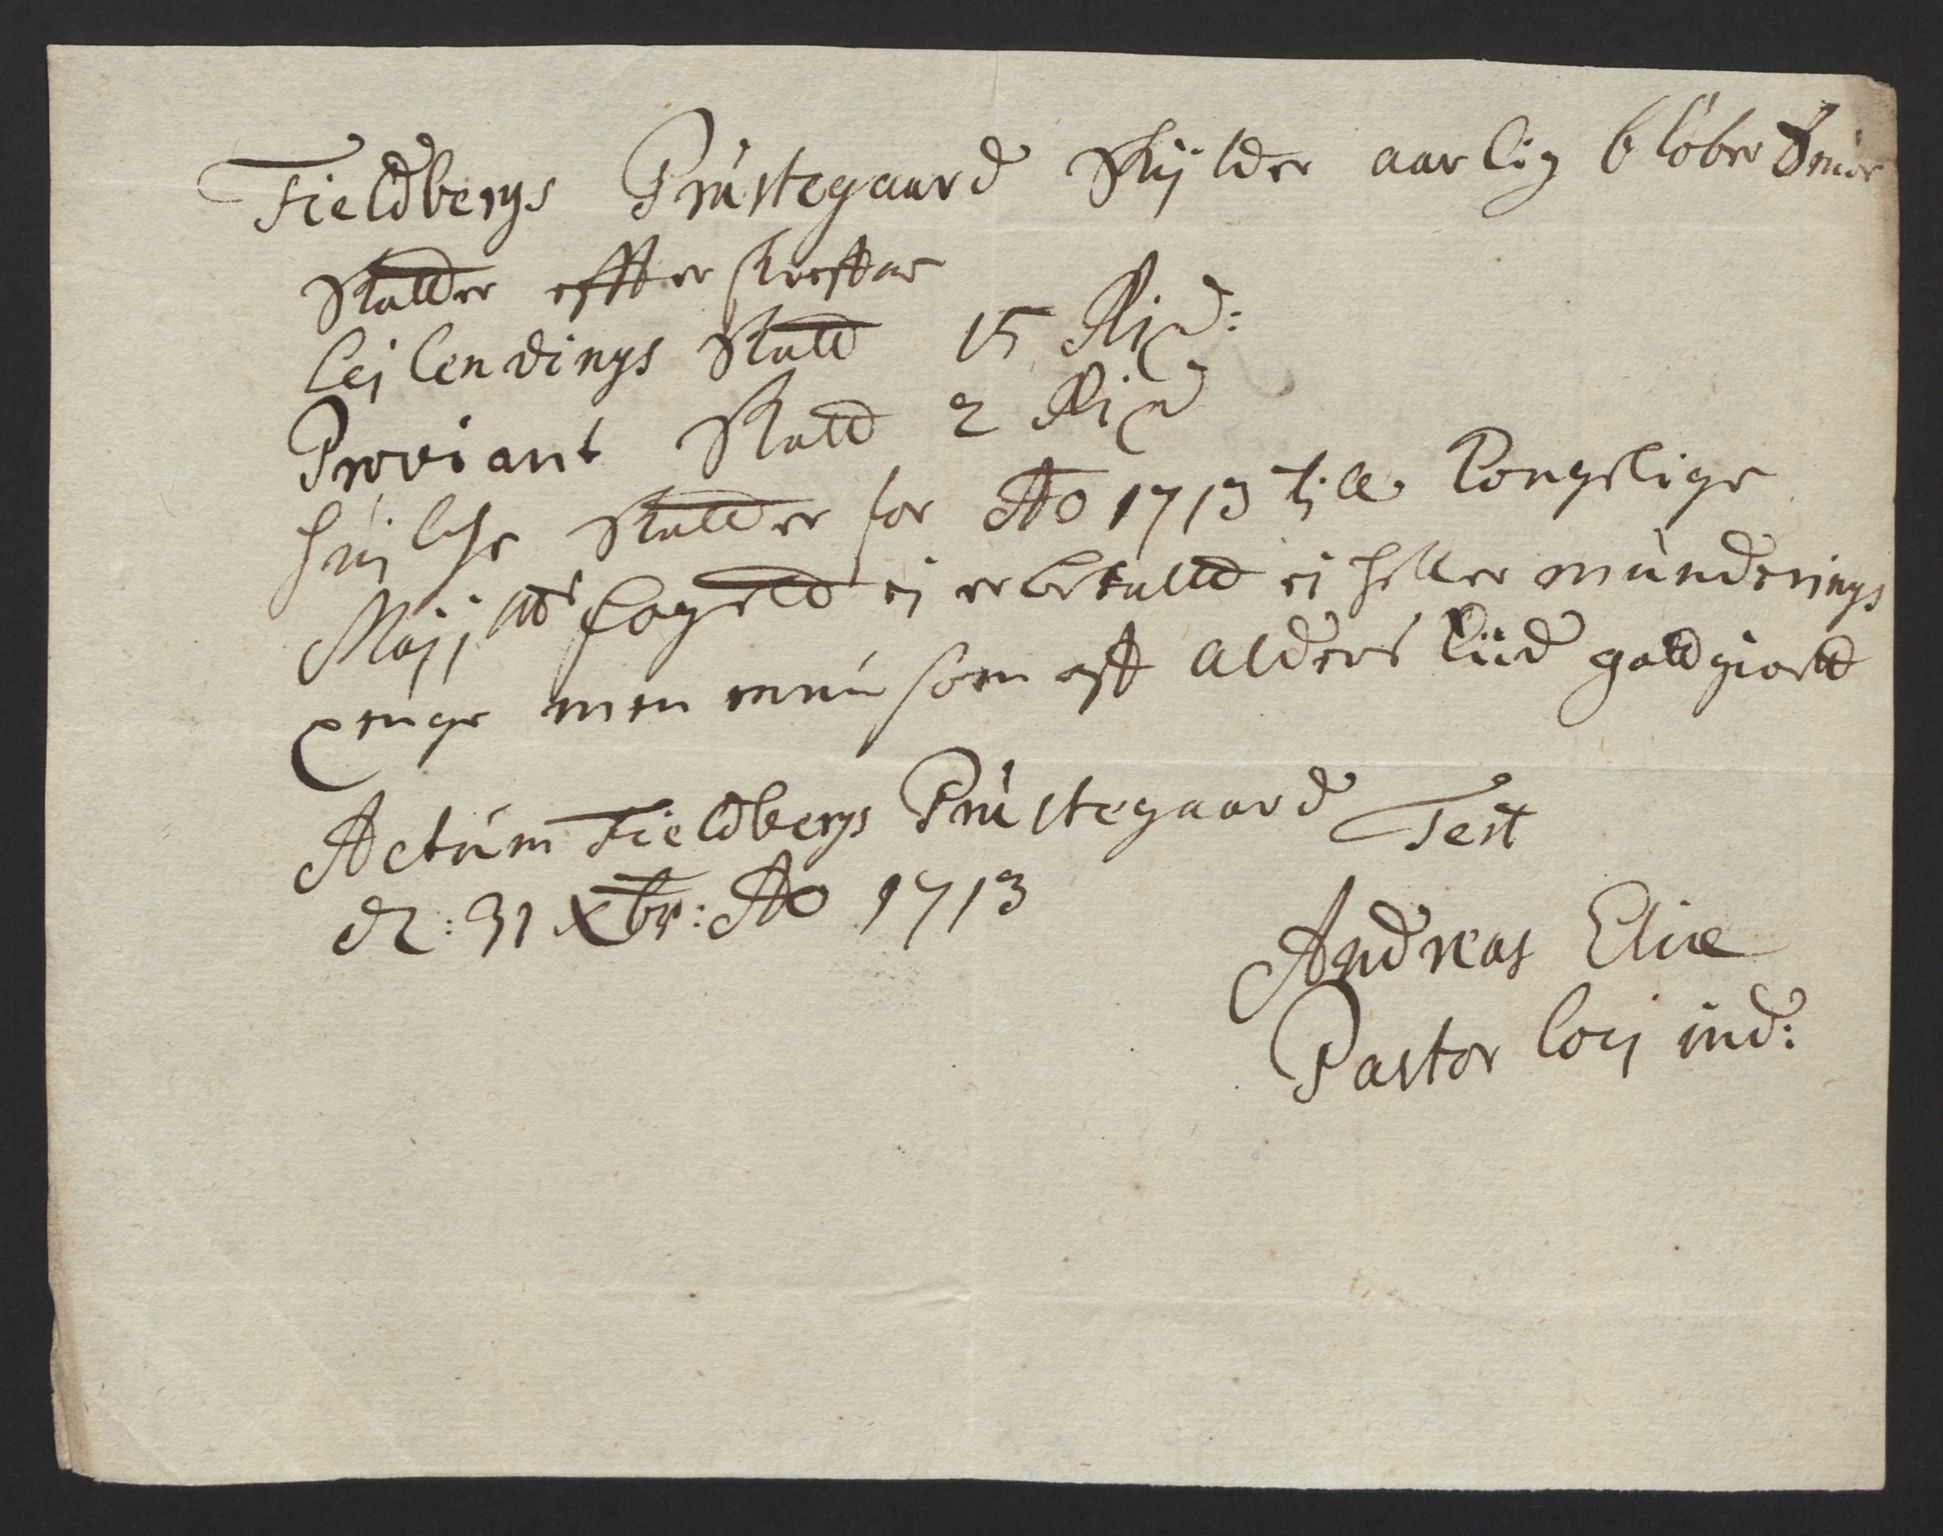 Fieldbergs Præstegaard skylder aarlig 6 löber Smör
Skatter effter skrefftne
Leilendings Skatt 15 Rixd:
Proviant Skatt 2 Rixd
huilche Skatter for Ao 1713 till Kongelige
Mayj tts fogeld ej er betalld ej heller munderings
penge men nu som aff Alders Tiid gotdgiortt
Actum Fieldbergs Præstegaard Test
d: 31 Xbr: Ao 1713
Andreas Eliæ
Pastor loci ind: